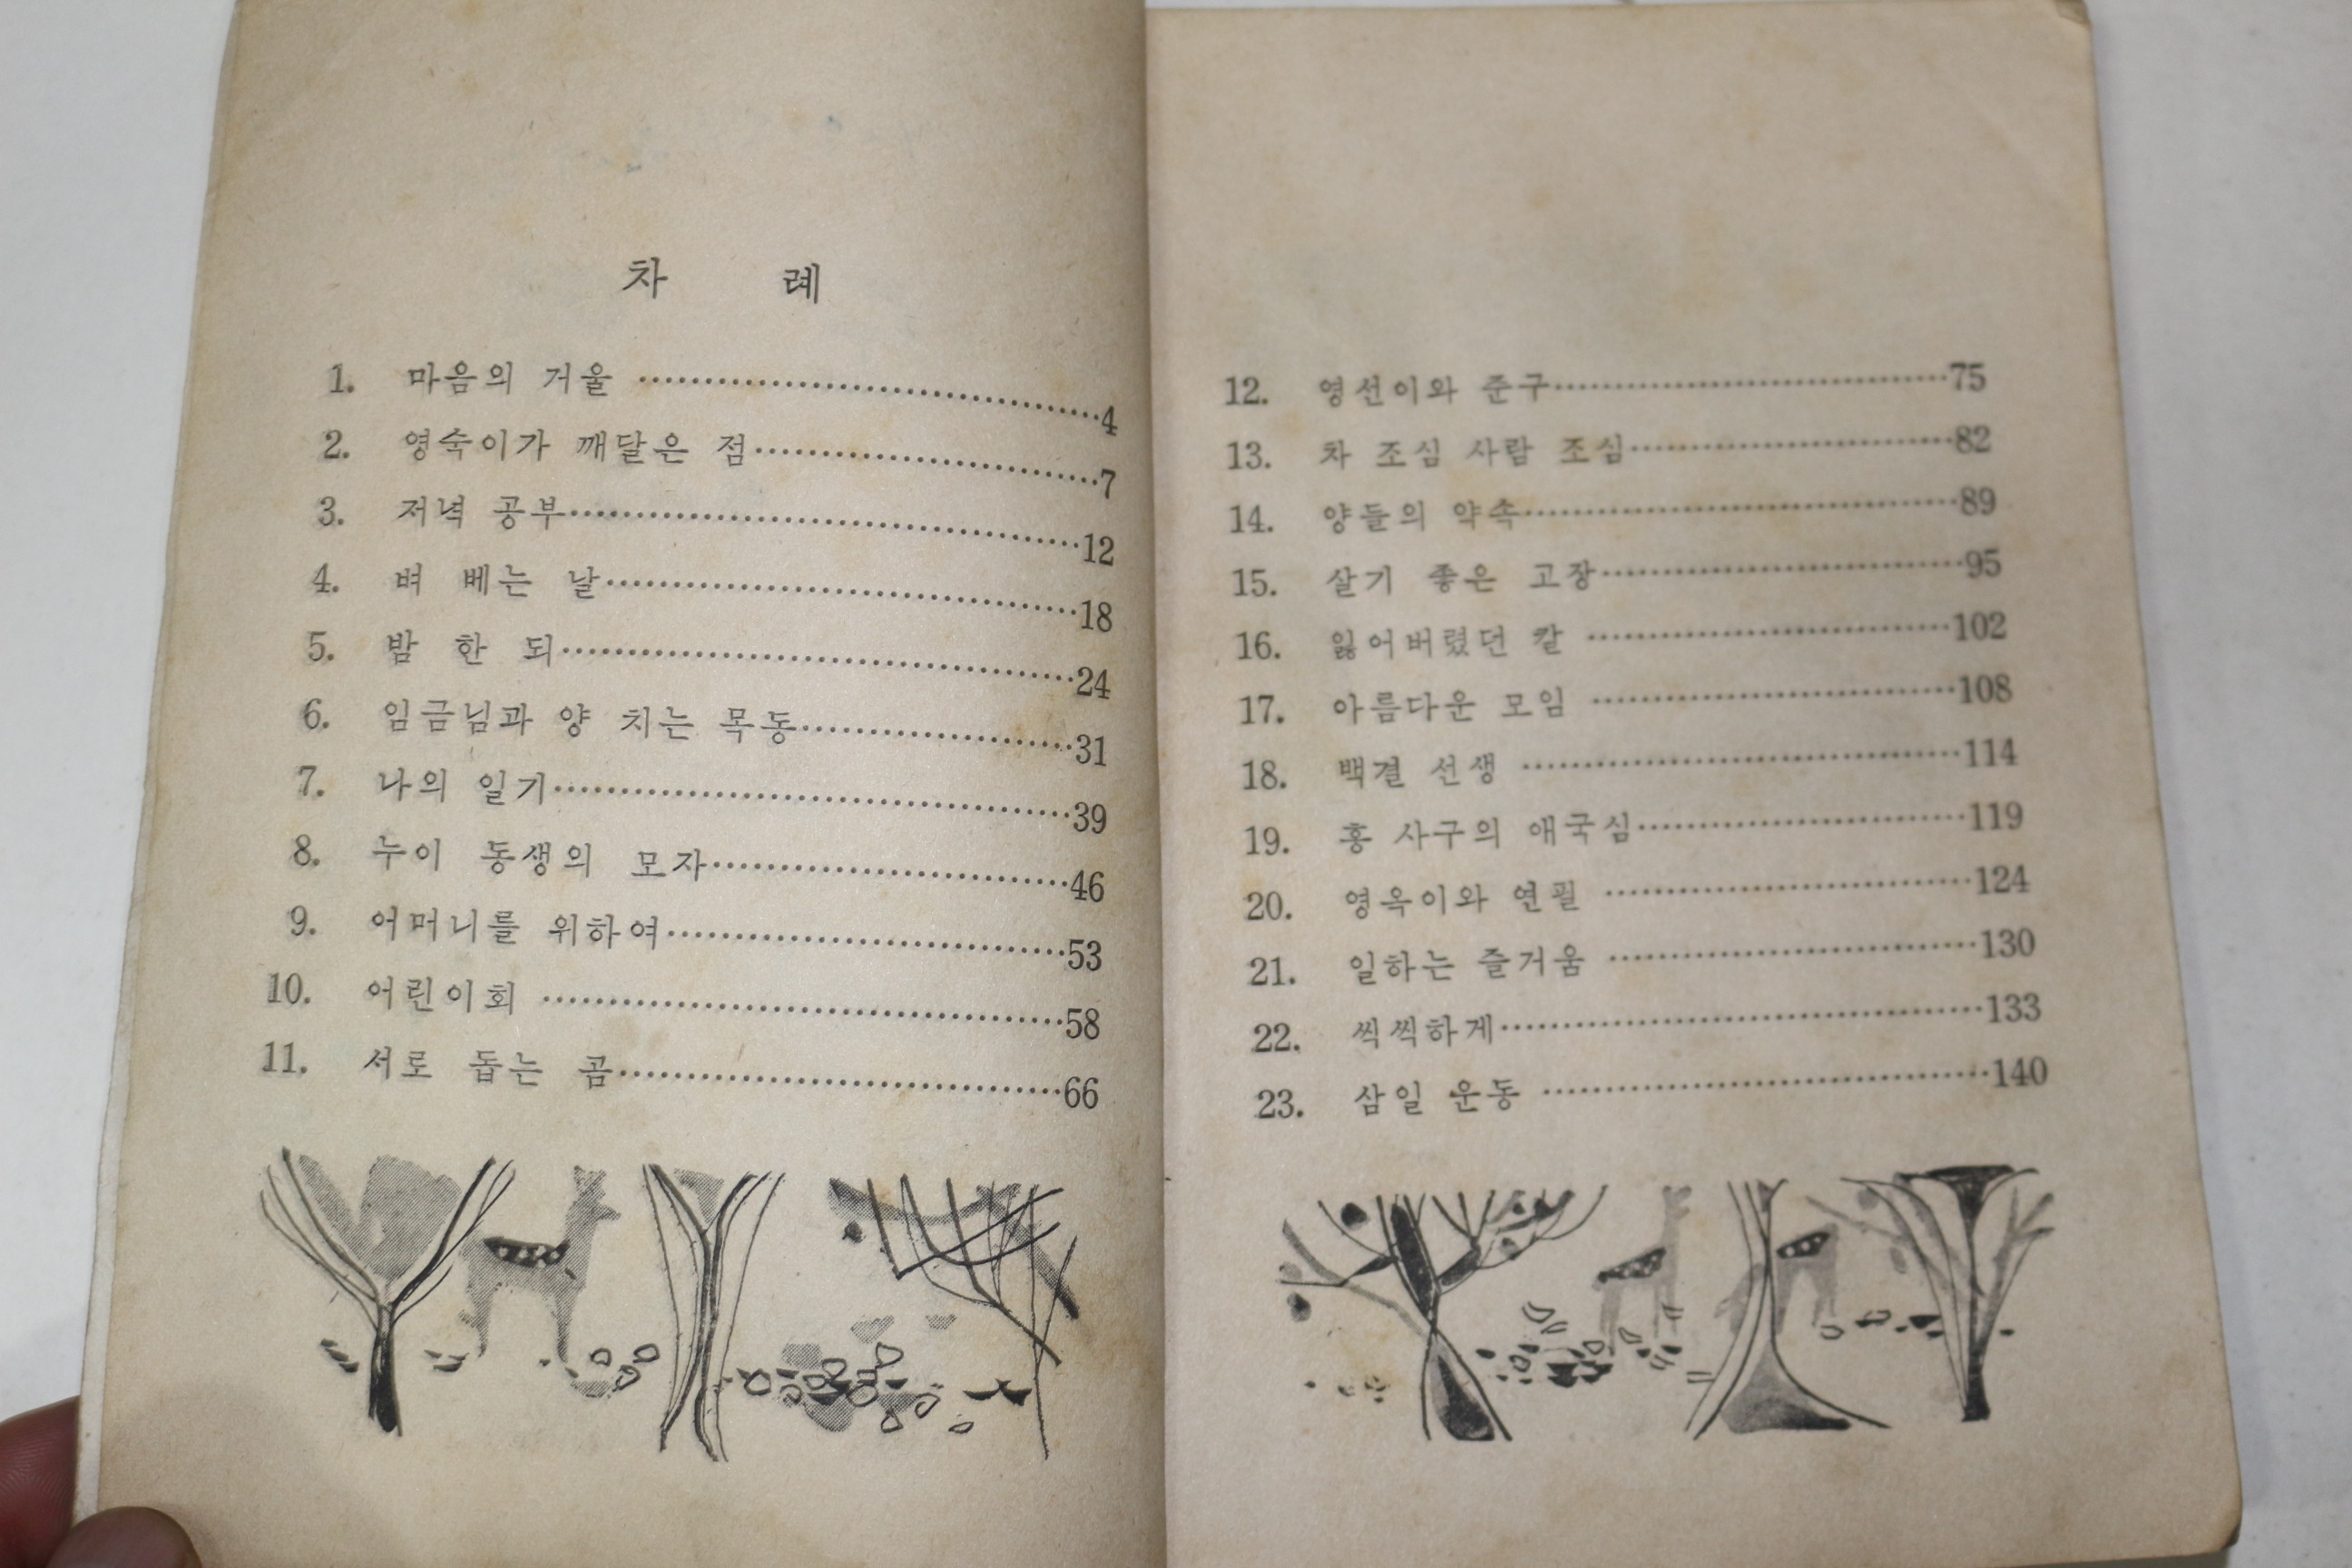 차 례
1. 마음의 거울 ………………………………4
2. 영숙이가 깨달은 점………………………7
3. 저녁 공부…………………………………12
4. 벼 베는 날…………………………………18
5. 밤 한 되……………………………………24
6. 임금님과 양 치는 목동…………………31
7. 나의 일기…………………………………39
8. 누이 동생의 모자…………………………46
9. 어머니를 위하여…………………………53
10. 어린이회 …………………………………58
11. 서로 돕는 곰………………………………66
12. 영선이와 준구……………………………75
13. 차 조심 사람 조심………………………82
14. 양들의 약속………………………………89
15. 살기 좋은 고장……………………………95
16. 잃어버렸던 칼 …………………………102
17. 아름다운 모임 …………………………108
18. 백결 선생 ………………………………114
19. 홍 사구의 애국심………………………119
20. 영옥이와 연필 …………………………124
21. 일하는 즐거움 …………………………130
22. 씩씩하게…………………………………133
23. 삼일 운동 ………………………………140